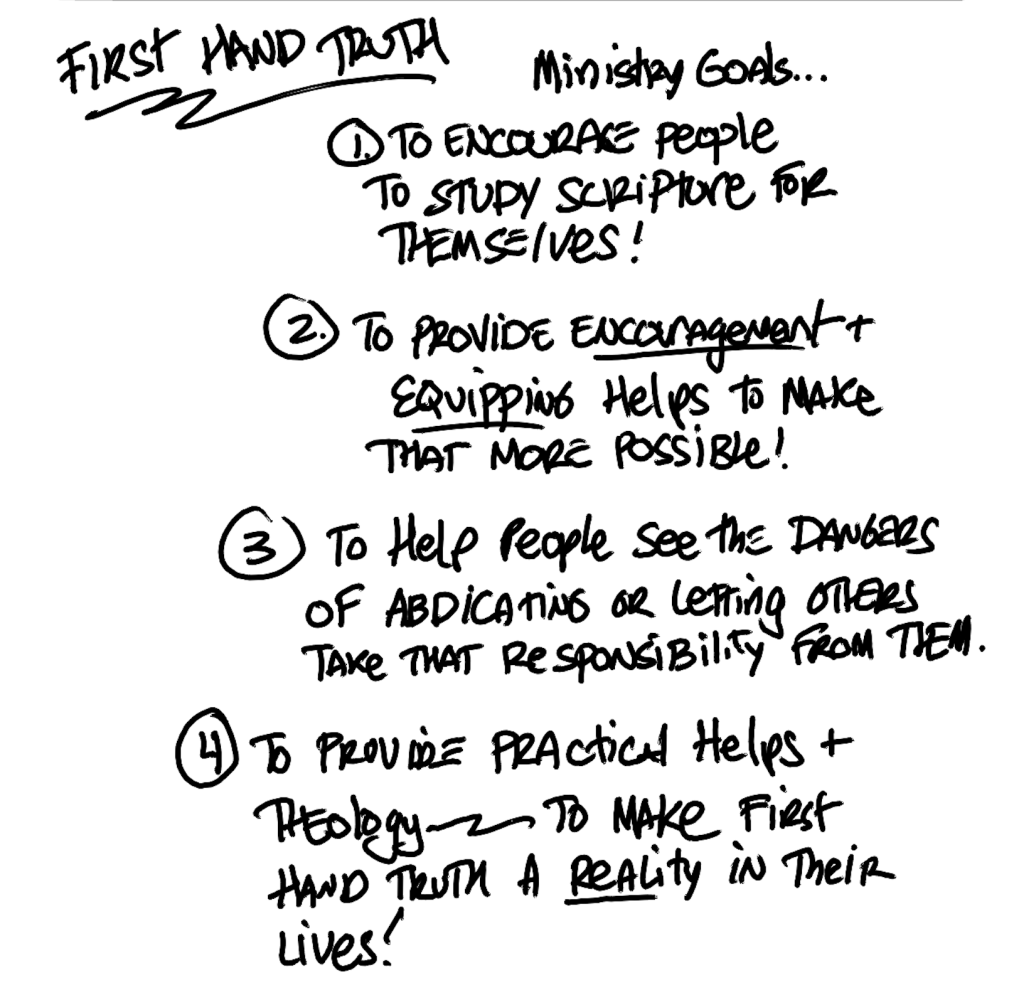 FIRST HAND TRUTH
Ministry GOALS...
1. TO ENCOURAGE People
TO STUDY SCRIPTURE FOR
THEMSELVES!
2. TO PROVIDE ENCOURAGEMENT +
EQUIPPING Helps TO MAKE
THAT MORE POSSIBLE!
3 TO Help People See THE DANGERS
OF ABDICATING OR Letting OTHERS
TAKE THAT RESPONSIBILITY FROM THEM.
4 TO PROVIDE PRACTICAL Helps +
THEOLOGY — TO MAKE FIRST
HAND TRUTH A REALITY IN THEIR
LIVES!